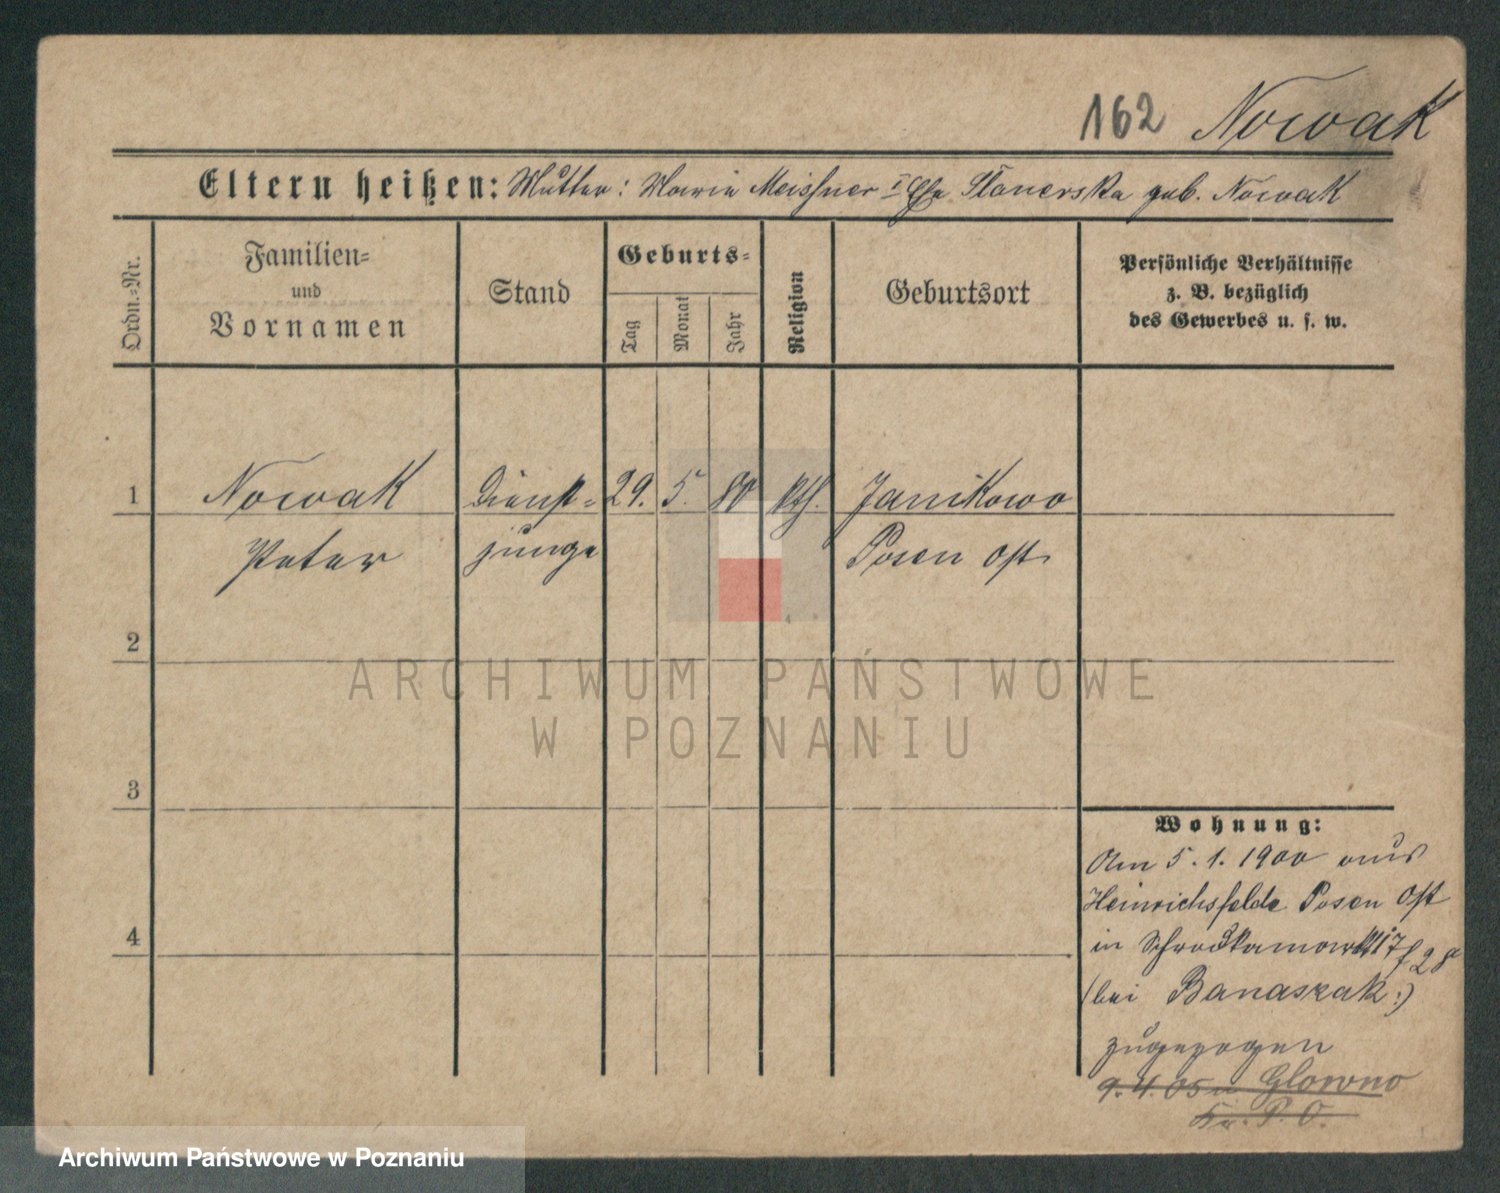 162 Nowak
Eltern heißen: Mutter: Marie Meissner I Ehe Slanerska geb. Nowak
Ordn.-Nr.
Familien-
und
Vornamen
Stand
Geburts-
Tag
Monat
Jahr
Religion
Geburtsort
Persönliche Verhältnisse
z. B. bezüglich
des Gewerbes u. s. w.
1 Nowak Dienst- 29. 5. 80 kth. Janikowo
Peter junge Posen Ost
2
ARCHIWUM PAŃSTWOWE
W POZNANIU
3
Wohnung:
Am 5. 1. 1900 aus
Heinrichsfelde Posen Ost
in 17 28
4
(bei Banaszak:)
zugezogen
9. 4. 05 n. Glowno
Kr. P. O.
Archiwum Państwowe w Poznaniu